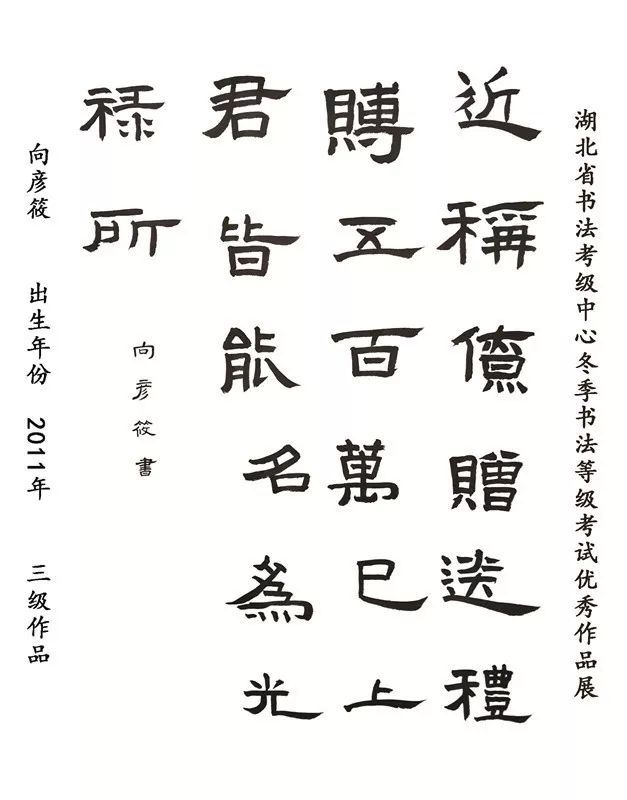 湖北省书法考级中心冬季书法等级考试优秀作品展
近稱僚贈送禮
賻五百萬巳上
君皆能名為光
禄所
向彦筱書
向彦筱 出生年份 2011年 三级作品